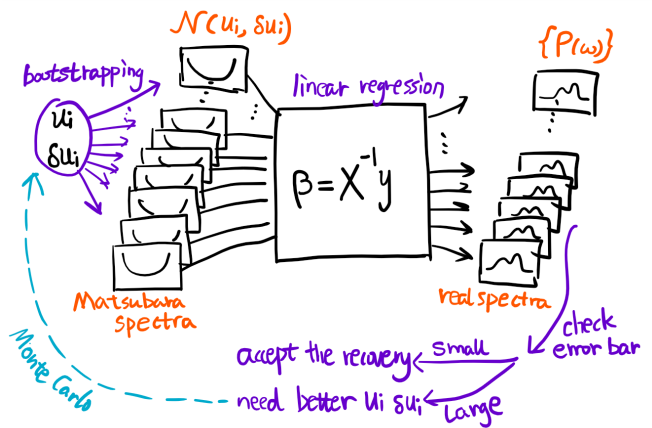 N(ui, δui)
{P(ω)}
bootstrapping
linear regression
ui
δui
β=X⁻¹y
Matsubara
spectra
real spectra
check
error bar
small
accept the recovery
need better ui δui
Large
Monte Carlo